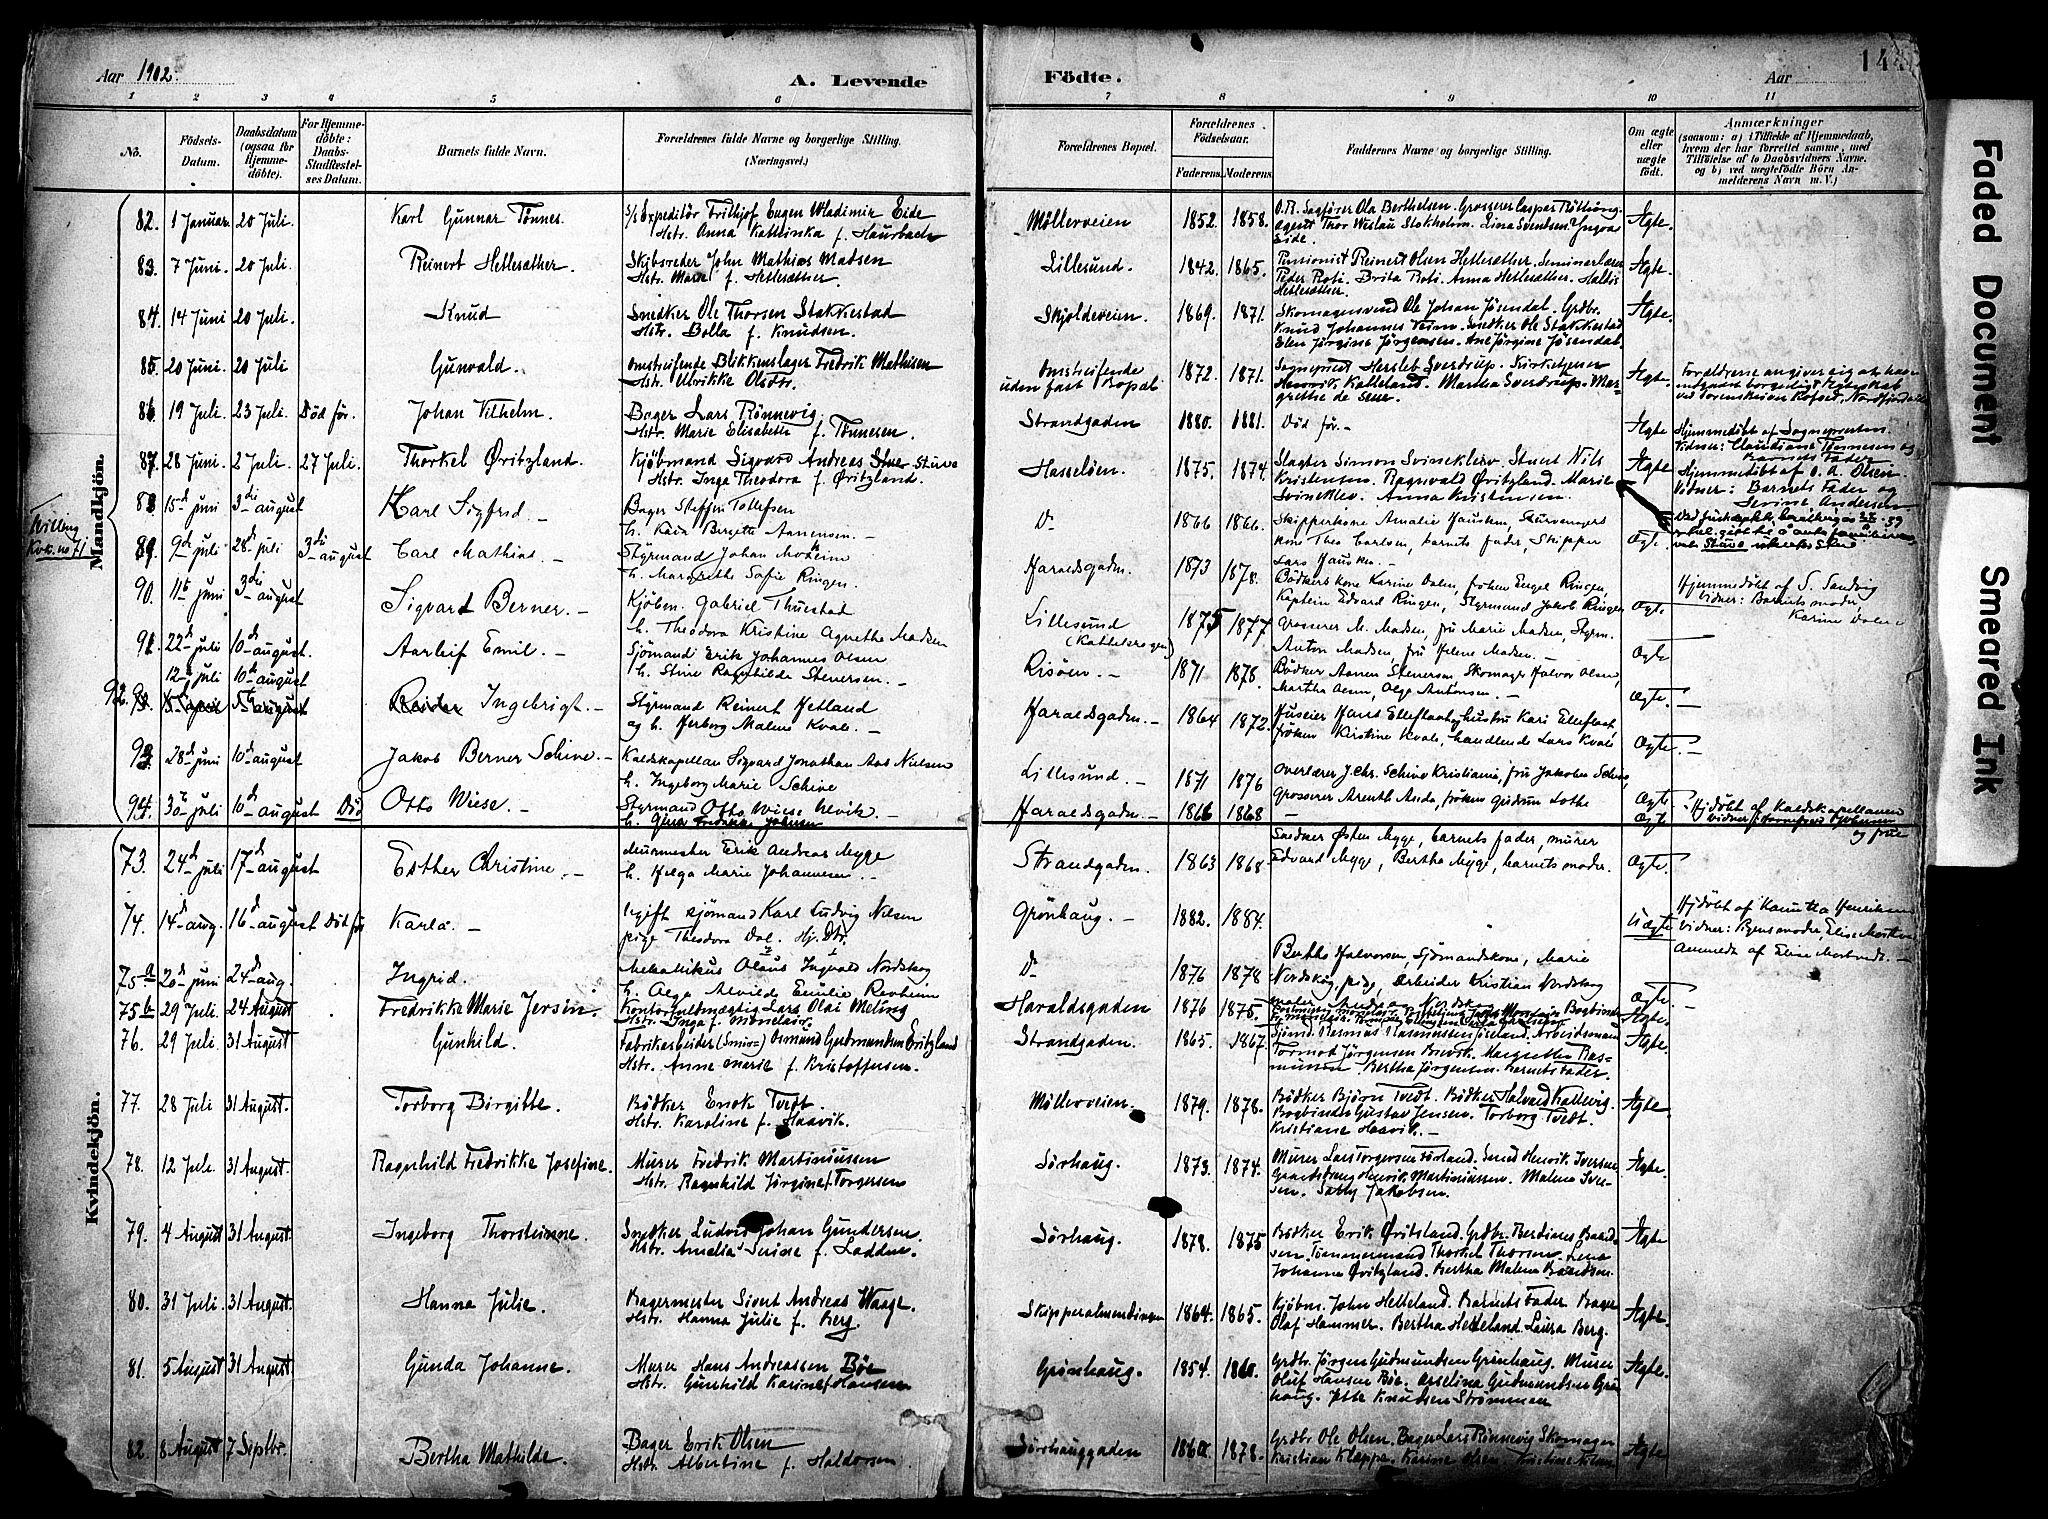 Aar 1902. A. Levende
Födte. Aar 144
1 2 3 4 5 6
7 8 9 10 11
No. Födsels-Datum. Daabsdatum (ogsaa for Hjemme-döbte). For Hjemme-döbte: Daabs-Stadfestel-ses Datum. Barnets fulde Navn. Forældrenes fulde Navne og borgerlige Stilling. (Næringsvei.)
Forældrenes Bopæl. Forældrenes Födselsaar. Faderens. Moderens. Faddernes Navne og borgerlige Stilling. Om ægte eller uægte födt. Anmærkninger
(saasom: a) i Tilfælde af Hjemmedaab, hvem der har forrettet samme, med Tilföielse af to Daabsvidners Navne. og b) ved uægtefödte Börn An-melderens Navn m. V.)
Mandkjön.
82. 1 Januar 20 Juli. Karl Gunnar Tönnes. S/s Expeditör Frithjof Eugen Wladimir Eide
Hstr. Anna Kathinka f. Haurbach
Möllerveien 1852. 1858. O.R. Sagförer Ola Berthelsen. Grosserer Caspar
Agent Thor Stokholm. Lina Svendsen. Yngvar
Eide. Ægte.
83. 7 Juni. 20 Juli. Reinert Hetlesæther. Skibsreder John Mathias Madsen
Hstr. Marie f. Hetlesæther.
Lillesund. 1842. 1865. Pensionist Reinert Olsen Hetlesæther. Seminarlærer
Peder Roti. Brita Roti. Anna Hetlesæther.
Hetlesæther. Ægte.
84. 14 Juni 20 Juli. Knud Snedker Ole Thorsen Stakkestad
Hstr. Bolla f. Knudsen.
Skjoldeveien. 1869. 1871. Skomagersvend Ole Johan Jösendal. Grdbr.
Knud Johannes Veim. Snedker Ole Stakkestad
Elen Jörgine Jörgensen. Ane Jörgine Jösendal. Ægte.
85. 20 Juni. 20 Juli Gunvald. Omstreifende Blikkenslager Fredrik Mathisen
Hstr. Ulrikke Olsdtr.
Omstreifende
uden fast Bopæl 1872. 1871. Sogneprest Hersleb Sverdrup. Kirketjener
Henrik Kalleland. Martha Sverdrup. Mar-
grethe Ægte Forældrene angiver sig at have
indgaaet borgerligt Ægteskab
86 19 Juli. 23 Juli Död för. Johan Vilhelm. Bager Lars Rönnevig.
Hstr. Marie Elisabeth f. Tönnesen.
Strandgaden 1880. 1881. Död för.- Ægte Hjemmedöbt af Sognepresten.
Vidner: Claudiane Tönnesen og
Barnets Fader
87. 28 Juni. 2 Juli. 27 Juli. Thorkel Øritzland. Kjöbmand Sigvard Andreas Stüve
Hstr. Inga Theodora f. Øritzland.
Hasselöen. 1875. 1874. Slagter Simon Svineklev. Stuert Nils
Kristensen. Ragnvald Øritzland. Marie
Svineklev. Anna Kristensen. Ægte Hjemmedöbt af O. A. Olsen.
Vidner: Barnets Fader og
Serine Andersen
Tvilling
Kvk. no 71
88 15d juni 3die august Karl Sigfrid.- Bager Steffen Tollefsen
h. Kaia Birgitte Aanensen.-
D- 1866 1866. Skipperkone Amalie Hausken,
kone Thea Carlsen, barnets fader, Skipper
Lars Hausken.- Ægte.
89. 9d juli 28d juli 3die august Carl Mathias.- Styrmand Johan
h. Margrethe Sofie Ringen.
Haraldsgaden. 1873 1878. Bödkers kone Karine Dalen, fröken Engel Ringen,
Kaptein Edvard Ringen, Styrmand Jakob Ringen Ægte Hjemmedöbt af S. Sandvig
Vidner: Barnets moder,
Karine Dalen
90. 11te juni 3die august Sigvard Berner.- Kjöbm. Gabriel Thuestad
h. Theodora Kristine Agnethe Madsen
Lillesund 1875 1877 Grosserer M. Madsen, fru Marie Madsen, Styrm.
Anton Madsen fru Helene Madsen.- Ægte
91 22d juli 10d august. Aarleif Emil.- Sjömand Erik Johannes Olsen
h. Stine Ragnhilda Stenersen.-
Risöen.- 1871 1878. Bödker Aanen Stenersen Skomager Halvor Olsen,
Martha Aenn, Olga Antonsen.- Ægte.
92. 12d juli 10d august Reidar Ingebrigt.- Styrmand Reinert Hetland
og h. Herborg Malene Kvale.-
Haraldsgaden.- 1864 1872. Huseier Hans hustru Kari
fröken Kirstine Kvale, handlende Lars Kvale Ægte.-
93. 28d juni 10d august Jakob Berner Schive.- Kaldskapellan Sigvard Jonathan Aas Nielsen
h. Ingeborg Marie Schive
Lillesund.- 1871 1876 Overlærer J. Chr. Schive Kristiania, fru Jakobea Schive,
Grosserer Arenth Anda, fröken Gudrun Lothe Ægte.
94. 30te juli 10d august Död Otto Wiese.- Styrmand Otto Wiese Ulvik.-
Haraldsgaden- 1866 1868 - Ægte Hjdöbt af Kaldskapellanen
og frue
Kvindekjön.
73. 24d juli 17d august Esther Christine.- Murmester Erik Andreas Mygge
h. Helga Marie Johannesen.-
Strandgaden. 1863 1868 Snedker Østen Mygge, barnets fader, murer
Edvard Mygge, Bertha Mygge, barnets moder. Ægte.
74. 14d aug. 16d august Död för Karla.- Ugift sjömand Karl Ludvig Nilsen
pige Theodora Dal. Hj. Dtr.
Grönhaug.- 1882. 1884. Uægte Hjdöbt af Henriksen
Vidner:
Anmeldt af Elise
75a 20d juni 24d aug. Ingrid. Mekanikus Olaus Ingvald Nordskog
h. Olga Alvilde Emilie Revheim
D- 1876 1878 Berthe Halvorsen, Sjömandskone, Marie
Nordskog, pige, Arbeider Kristian Nordskog Ægte.-
75b 29 Juli. 24 August Fredrikke Marie Jersin. Kontorfuldmægtig Lars Olai Meling
Hstr. Inga f. Monclair.
Haraldsgaden 1876 1875. Ægte.
76. 29 Juli. 31 August Gunhild. Fabrikarbeider (Smör-) Osmund Gudmundsen Øritzland
Hstr. Anne Marie f. Kristoffersen.
Strandgaden. 1865. 1867. Sjömd. Rasmus Rasmussen Arbeidsmand
Tormod Jörgensen Margrethe Ras-
mussen. Bertha Jörgensen. Barnets Fader. Ægte
77. 28 Juli 31 August. Torborg Birgitte. Bödker Enok Tvedt
Hstr. Karoline f. Haavik.
Möllerveien. 1879. 1878. Bödker Björn Tvedt. Bödker Halvard Kallevig.
Bogbinder Gustav Jensen. Torborg Tvedt.
Kristiane Haavik.- Ægte.
78. 12 Juli. 31 August. Ragnhild Fredrikke Josefine. Murer Fredrik Martiniussen
Hstr. Ragnhild Jörgine f. Torgersen
Sörhaug. 1873. 1874. Murer Lars Torgersen Förland. Smed Henrik Iversen
Henrik Martiniussen. Malene Iver-
sen. Sally Jakobsen. Ægte.
79. 4 August 31 August Ingeborg Thorsteinne. Snedker Ludvig Johan Gundersen.
Hstr. Amalia Serine f. Lodden.
Sörhaug. 1878. 1875 Bödker Erik Øritsland. Grdbr. Berdines Baard-
sen. Tömmermand Thorkel Thorsen. Lena
Johanna Øritzland. Bertha Malene Baardsen. Ægte
80. 31 Juli. 31 August. Hanna Julie. Bagermester Sivert Andreas Waage.
Hstr. Hanna Julie f. Berg.
Skipperalmendingen 1864. 1865. Kjöbm. John Helleland. Barnets Fader Bager
Olaf Hammer. Bertha Helleland. Laura Berg. Ægte.
81. 5 August 31 August Gunda Johanne. Murer Hans Andreassen Böe
Hstr. Gunhild Karine f. Hansen
Grönhaug. 1854. 1860. Grdbr. Jörgen Gudmundsen Grönhaug. Murer
Oluf Hansen Böe. Asseline Gudmundsen Grön-
haug. Jette Knudsen Strömmen Ægte.
82. 8 August 7 Septbr. Bertha Mathilde. Bager Erik Olsen
Hstr. Albertine f. Haldorsen.
Sörhauggaden 1860 1878. Grdbr. Ole Olsen. Bager Lars Rönnevig Skomager
Kristian Kloppe. Karine Olsen. Kristine Ægte
Faded Document
Smeared Ink